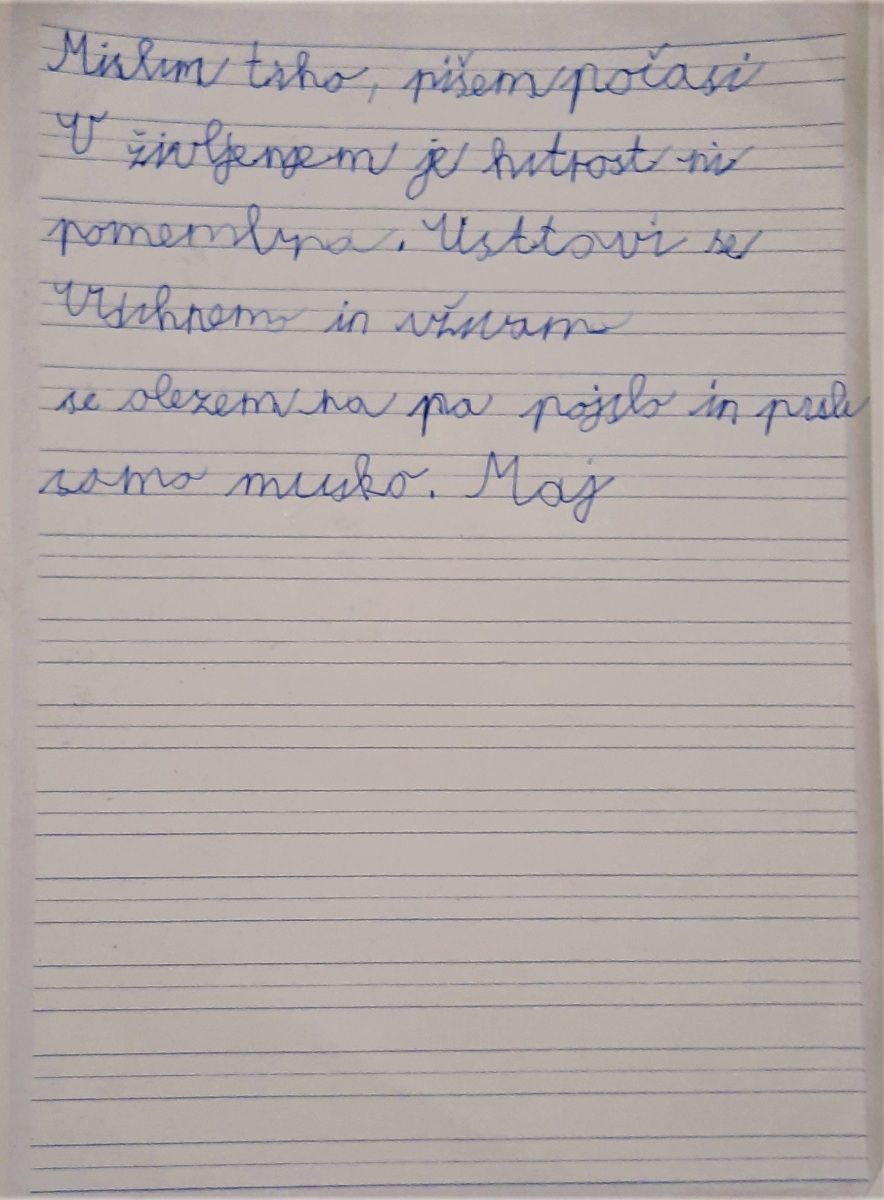 Mislim tiho, pišem počasi
V življenjem je hitrost ni
pomembna. Usttavi se
Vsihnem in uživam
se olezem na pa pojslo in prsli
samo musko. Maj